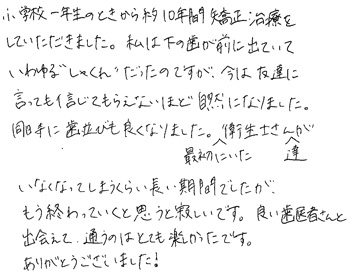 小学校一年生のときから約10年間矯正治療を
していただきました。私は下の歯が前に出ていて
いわゆる"しゃくれ"だったのですが、今は友達に
言っても信じてもらえないほど自然になりました。
同時に歯並びも良くなりました。衛生士さんが
最初にいた 達
いなくなってしまうくらい長い期間でしたが、
もう終わっていくと思うと寂しいです。良い歯医者さんと
出会えて、通うのはとても楽しかったです。
ありがとうございました!